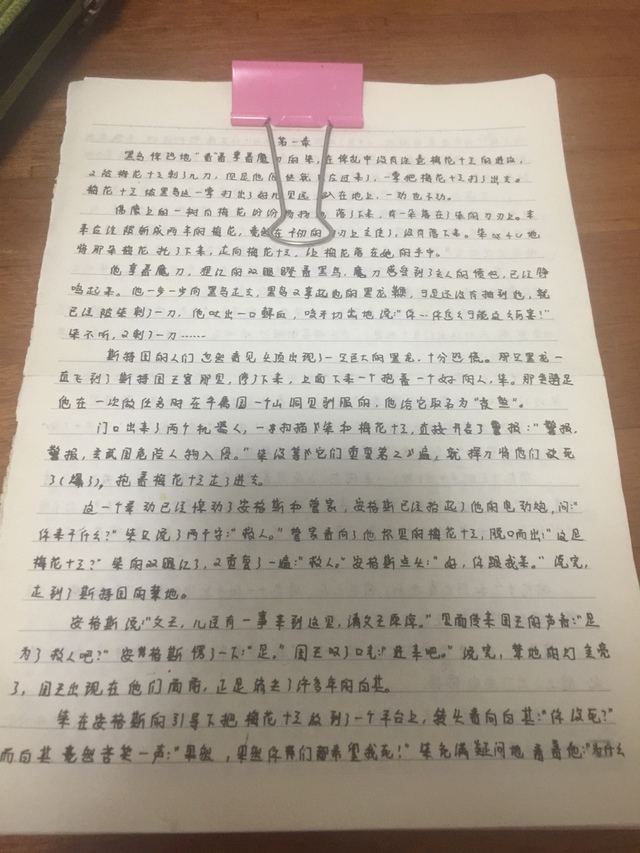 第一章
黑鸟惊恐地"看"着拿着魔刀的柒,在慌乱中没有注意梅花十三的进攻,
又被梅花十三刺了几刀,但是他很快就反应过来了,一掌把梅花十三打了出去。
梅花十三被黑鸟这一掌打出了好几里远,趴在地上,一动也不动。
偶像上的一树白梅花纷纷扬扬地落了下来,有一朵落在了柒的刀刃上。本
来应该断成两半的梅花,竟然在千刃的刀刃上支住了,没有落下来。柒
将那朵梅花托了下来,走向梅花十三,让梅花落在她的手中。
他拿着魔刀,猩红的双眼瞪着黑鸟,魔刀感受到了主人的愤怒,已经铮
鸣起来。他一步一步向黑鸟走去,黑鸟又拿起他的黑龙鞭,可是还没有抽到他,就
已经被柒刺了一刀,他吐出一口鲜血,咬牙切齿地说:"你…你怎么可能这么厉害!"
柒不听,又刺了一刀……
斯特国的人们忽然看见头顶出现了一只巨大的黑龙,十分恐慌。那只黑龙一
直飞到了斯特国王宫那里,停了下来,上面下来一个抱着一个女的人,柒。那是
他在一次做任务时在平离国一个山洞里驯服的,他给它取名为"夜煞"。
门口出来了两个机器人,一看扫描了柒和梅花十三,直接开启了警报:"警报,
警报,玄武国危险人物入侵。"柒没等它们重复第二遍,就挥刀将他们砍死
了(爆了),抱着梅花十三走了进去。
这一个举动已经惊动了安格斯和管家,安格斯已经抬起了他的电动炮,问:"
你来干什么?"柒只说了两个字:"救人。"管家看向了他怀里的梅花十三,脱口而出:"这是
梅花十三?"柒的双眼红了,又重复了一遍:"救人。"安格斯点头:"好,你跟我来。"说完,
走到了斯特国的禁地。
安格斯说:"父王,儿臣有一事来到这里,请父王原谅。"里面传来国王的声音:"是
为了救人吧?"安格斯愣了一下:"是。"国王叹了口气:"进来吧。"说完,禁地的灯全亮
了,国王出现在他们面前,正是失去了许多年的白其。
柒在安格斯的引导下把梅花十三放到了一个平台上,转头看向白其:"你没死?"
而白其竟然苦笑一声:"果然,果然你们都希望我死!"柒充满疑问地看着他:"为什么